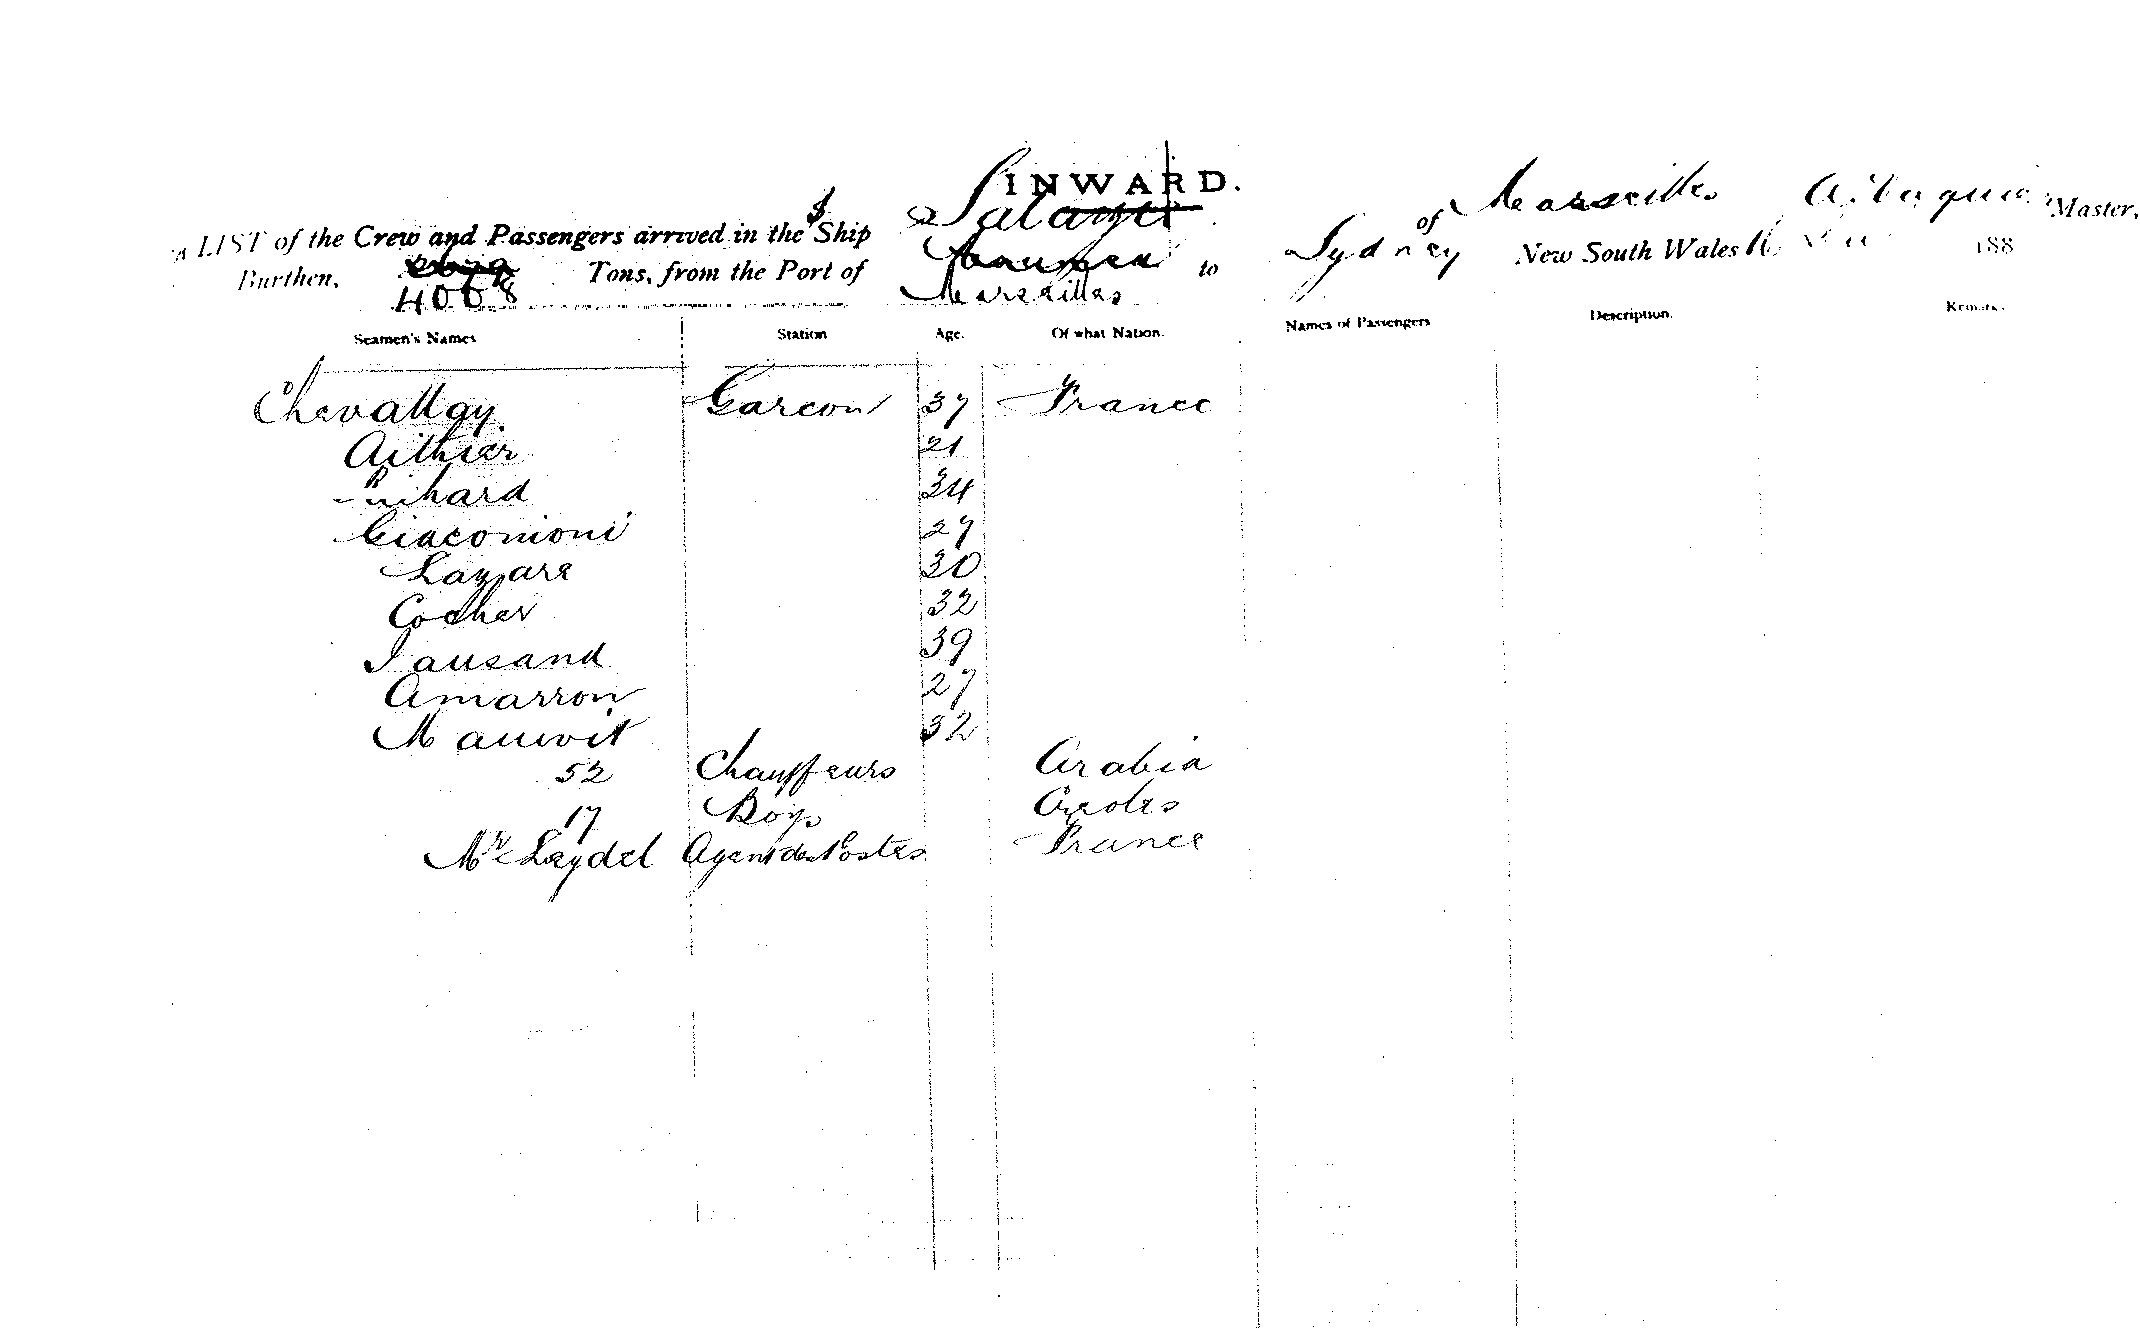 INWARD.
A LIST of the Crew and Passengers arrived in the S Ship Salazie of Marseilles Master,
Burthen, 4008 Tons, from the Port of Noumea Marseilles to Sydney New South Wales 16 188
Seamen's Names Station Age. Of what Nation. Names of Passengers Description. Remarks.
Chevallay Garcon 37 France
Aithier 21
34
Giacomoni 27
Lazare 30
Cocher 32
Tausand 39
Amarron 27
Mauvoit 32
52 Chauffeurs Arabia
17 Boys Creoles
Mr Leydet Agent des Postes France